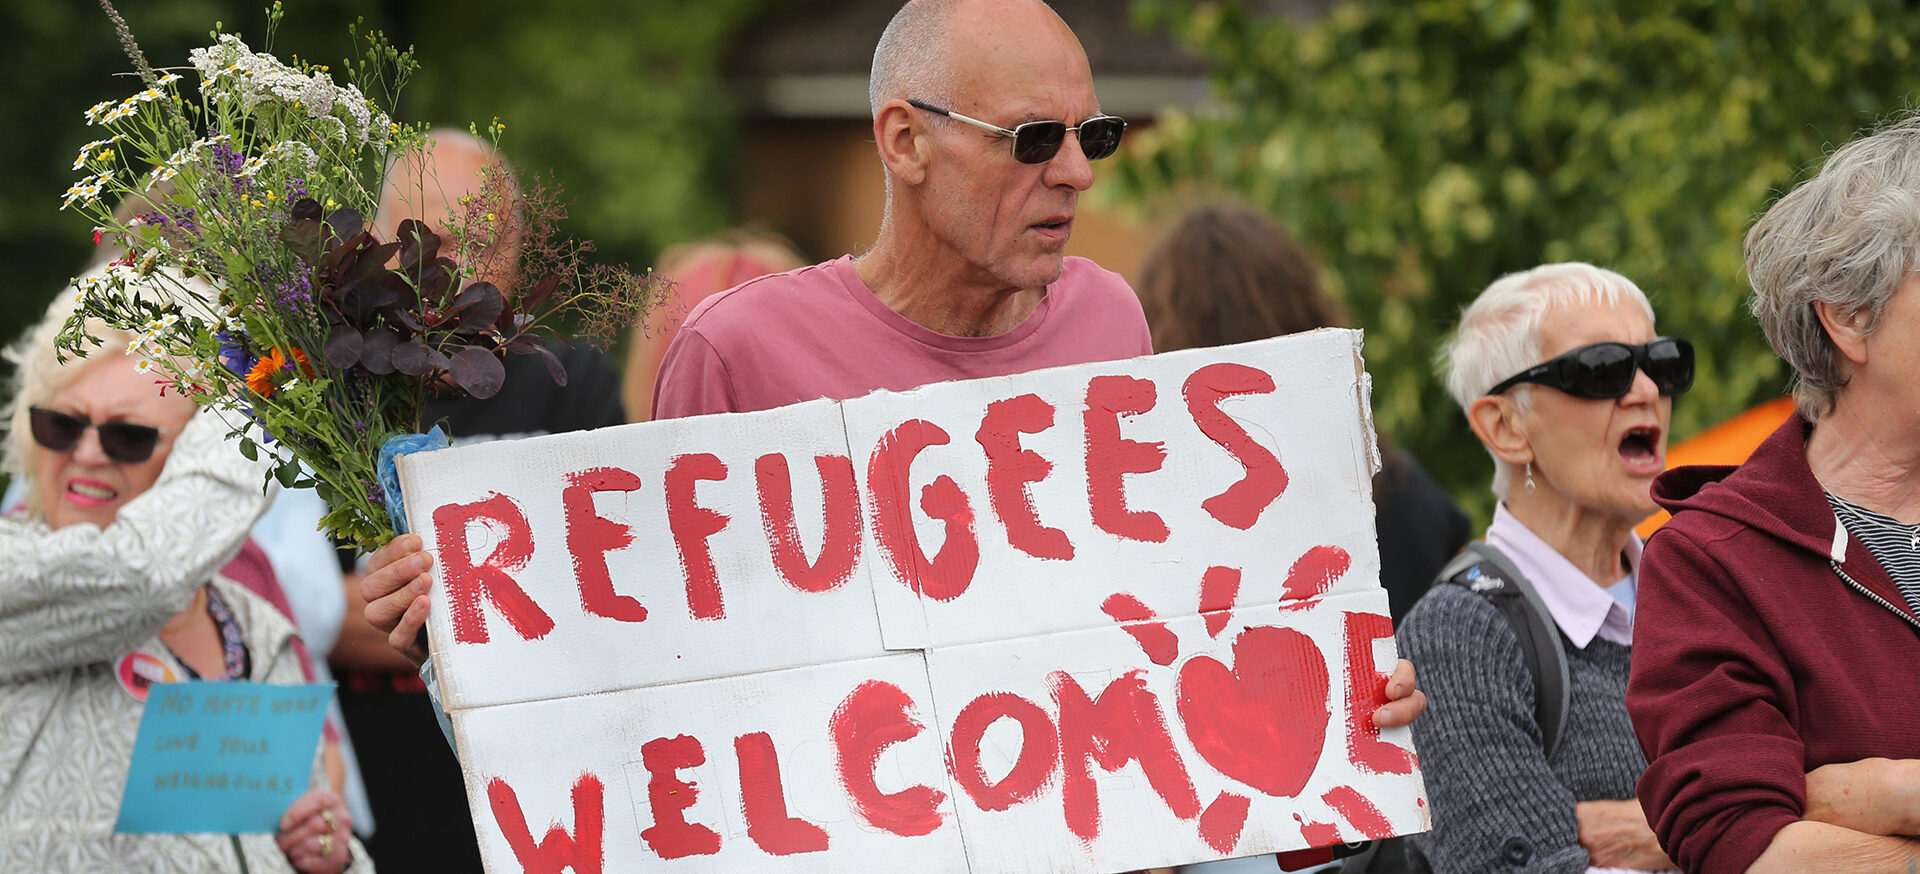 REFUGEES
WELCOME
NO HATE HERE
LOVE YOUR
NEIGHBOURS